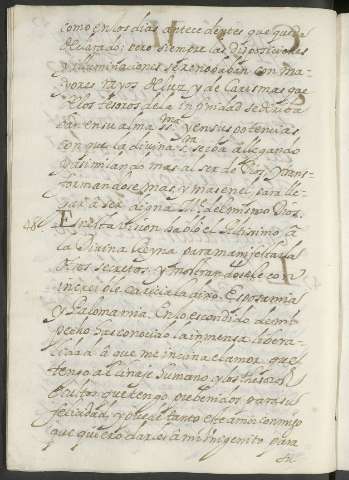 como en los dias antecedentes que queda
declarado; pero siempre las disposiciones
y illuminaciones se renobaban con ma-
yores rayos de luz y de Carismas que
de los tesoros de la infinidad se deriba
ban en su alma ss.ma y en sus potencias
con que la divina Sra se iba allegando
y asimilando mas al ser de Dios y trans-
formandose mas y mas en el para lle-
gar a ser digna Me del mismo Dios.
48 En esta vision habló el Altisimo a
la Divina Reyna para manifestarla
otros secretos, y mostrandosele con
increible caricia la dixo, Esposa mia
y Paloma mia, En lo escondido de mi
pecho has conocido la inmensa libera-
lidad a que me inclina el amor que
tengo al linaje humano y los thesoros
ocultos que tengo prebenidos para su
felicidad y puede tanto este amor conmigo
que quiero darles a mi Unigenito para
su